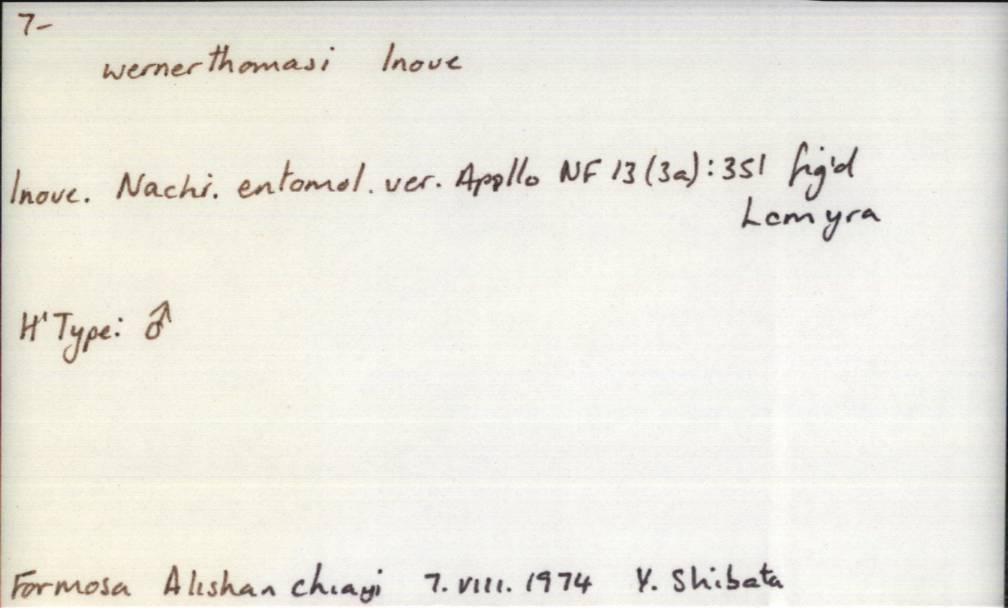 7-
wernerthomasi Inoue
Inoue. Nachr. entomol. ver. Apollo NF 13 (3a): 351 fig'd
Lemyra
H'Type: ♂
Formosa Alishan chiayi 7. VIII. 1974 Y. Shibata